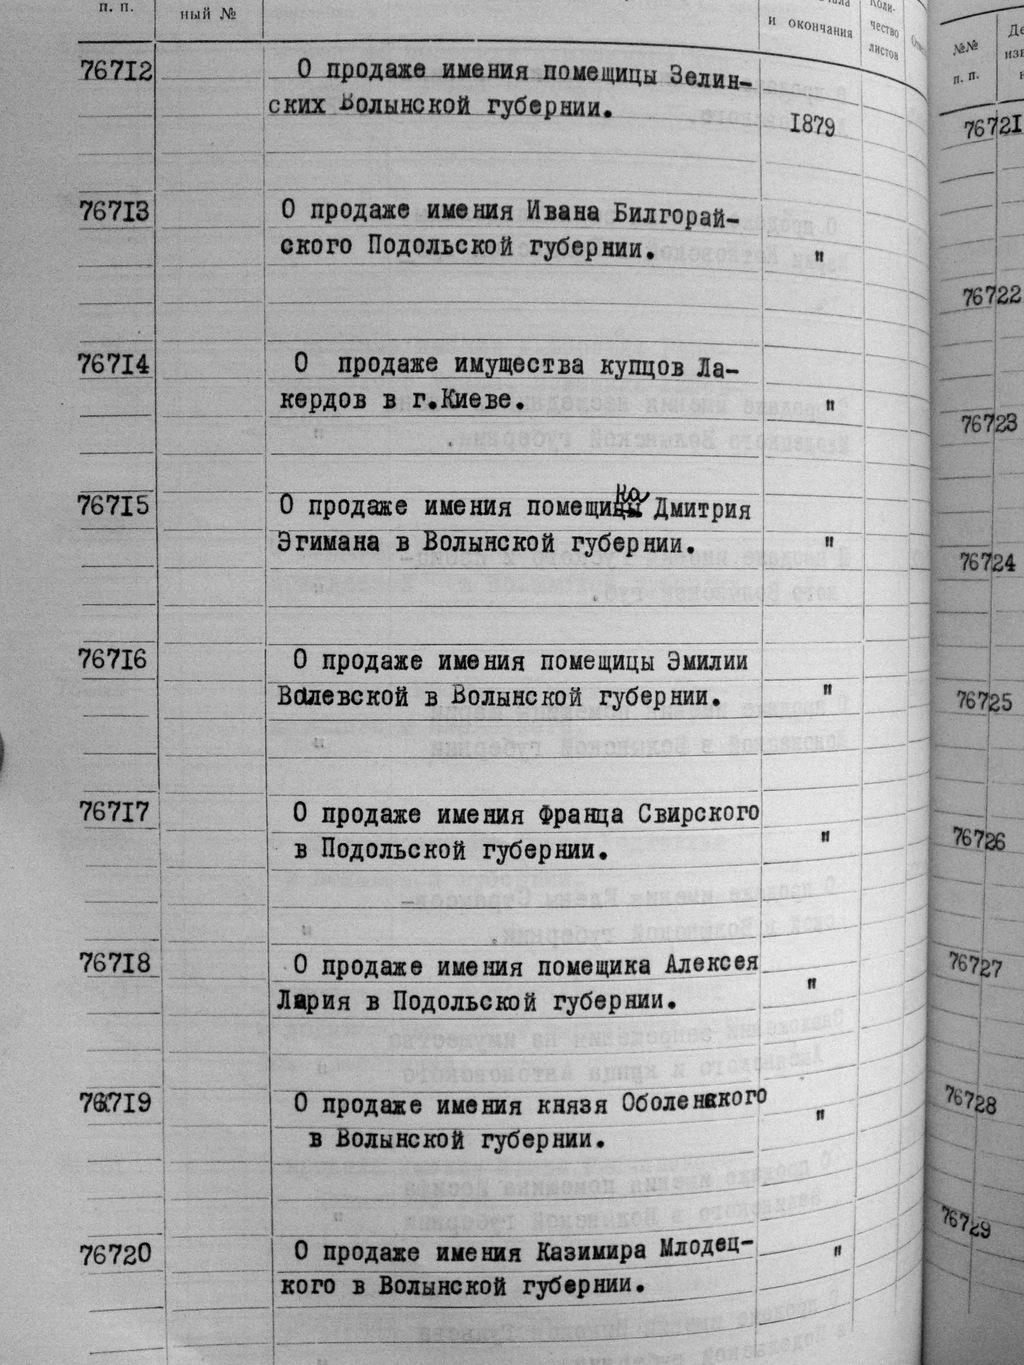 п. п.
ный №
и окончания
чество
листов
76712
О продаже имения помещицы Зелин-
ских Волынской губернии.
1879
76713
О продаже имения Ивана Билгорай-
ского Подольской губернии.
"
76714
О продаже имущества купцов Ла-
кердов в г.Киеве.
"
76715
О продаже имения помещика Дмитрия
Эгимана в Волынской губернии.
"
76716
О продаже имения помещицы Эмилии
Валевской в Волынской губернии.
"
76717
О продаже имения Франца Свирского
в Подольской губернии.
"
76718
О продаже имения помещика Алексея
Лария в Подольской губернии.
"
76719
О продаже имения князя Оболенского
в Волынской губернии.
"
76720
О продаже имения Казимира Млодец-
кого в Волынской губернии.
"
№№
п. п.
76721
76722
76723
76724
76725
76726
76727
76728
76729